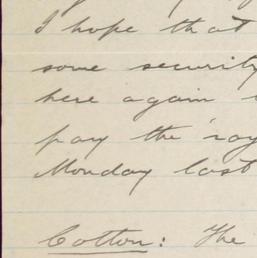 I hope that
some security
here again
pay the 'roy
Monday last
Cotton: The